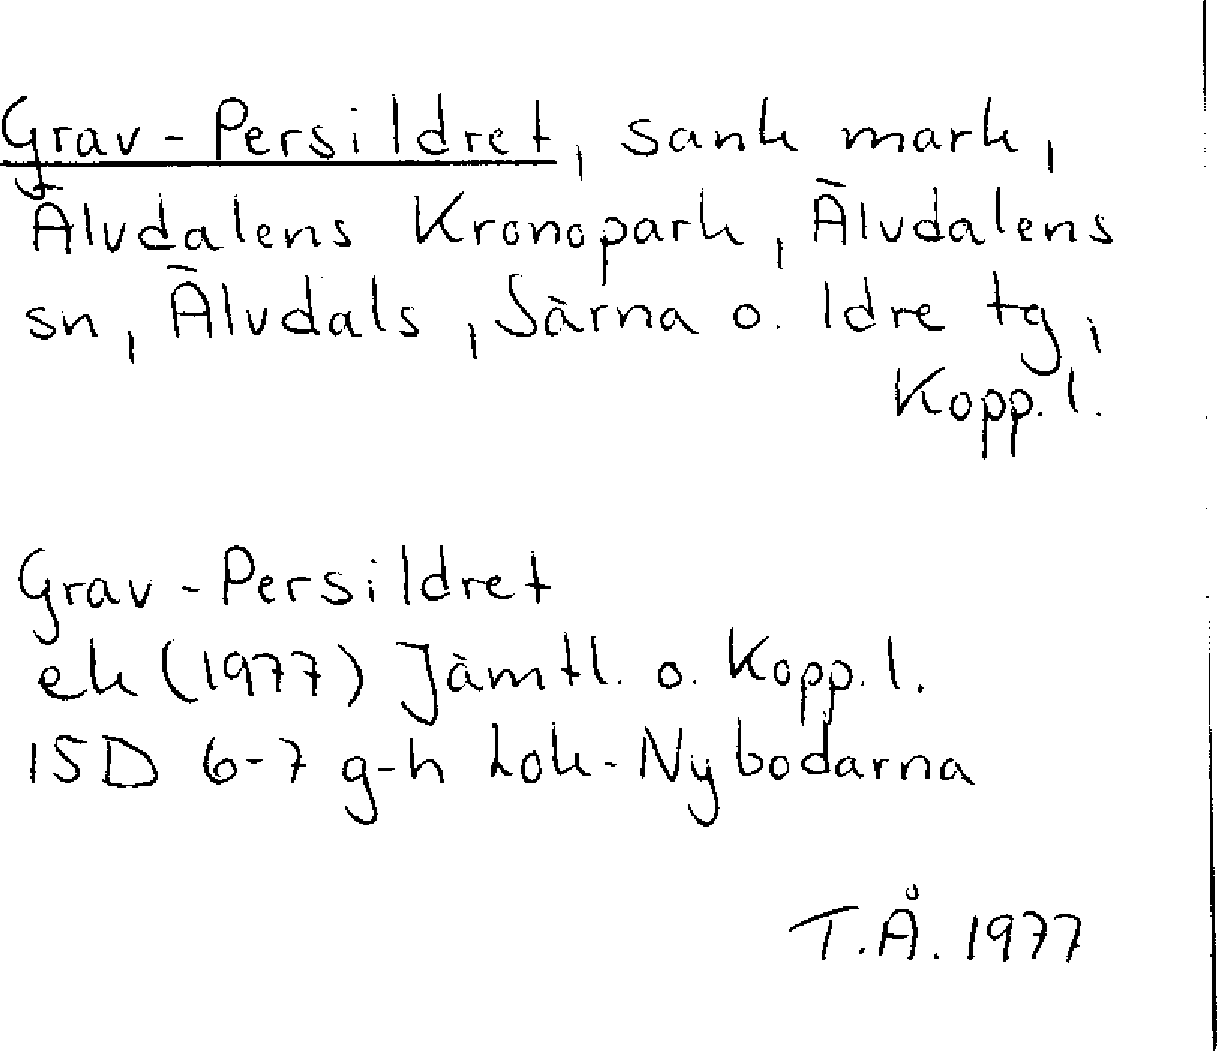 Grav-Persildret, sank mark,
Älvdalens Kronopark, Älvdalens
sn, Älvdals, Särna o. Idre tg,
Kopp. l.
Grav-Persildret
ek (1977) Jämtl. o. Kopp. l.
15D 6-7 g-h Lok-Nybodarna
T.Å. 1977